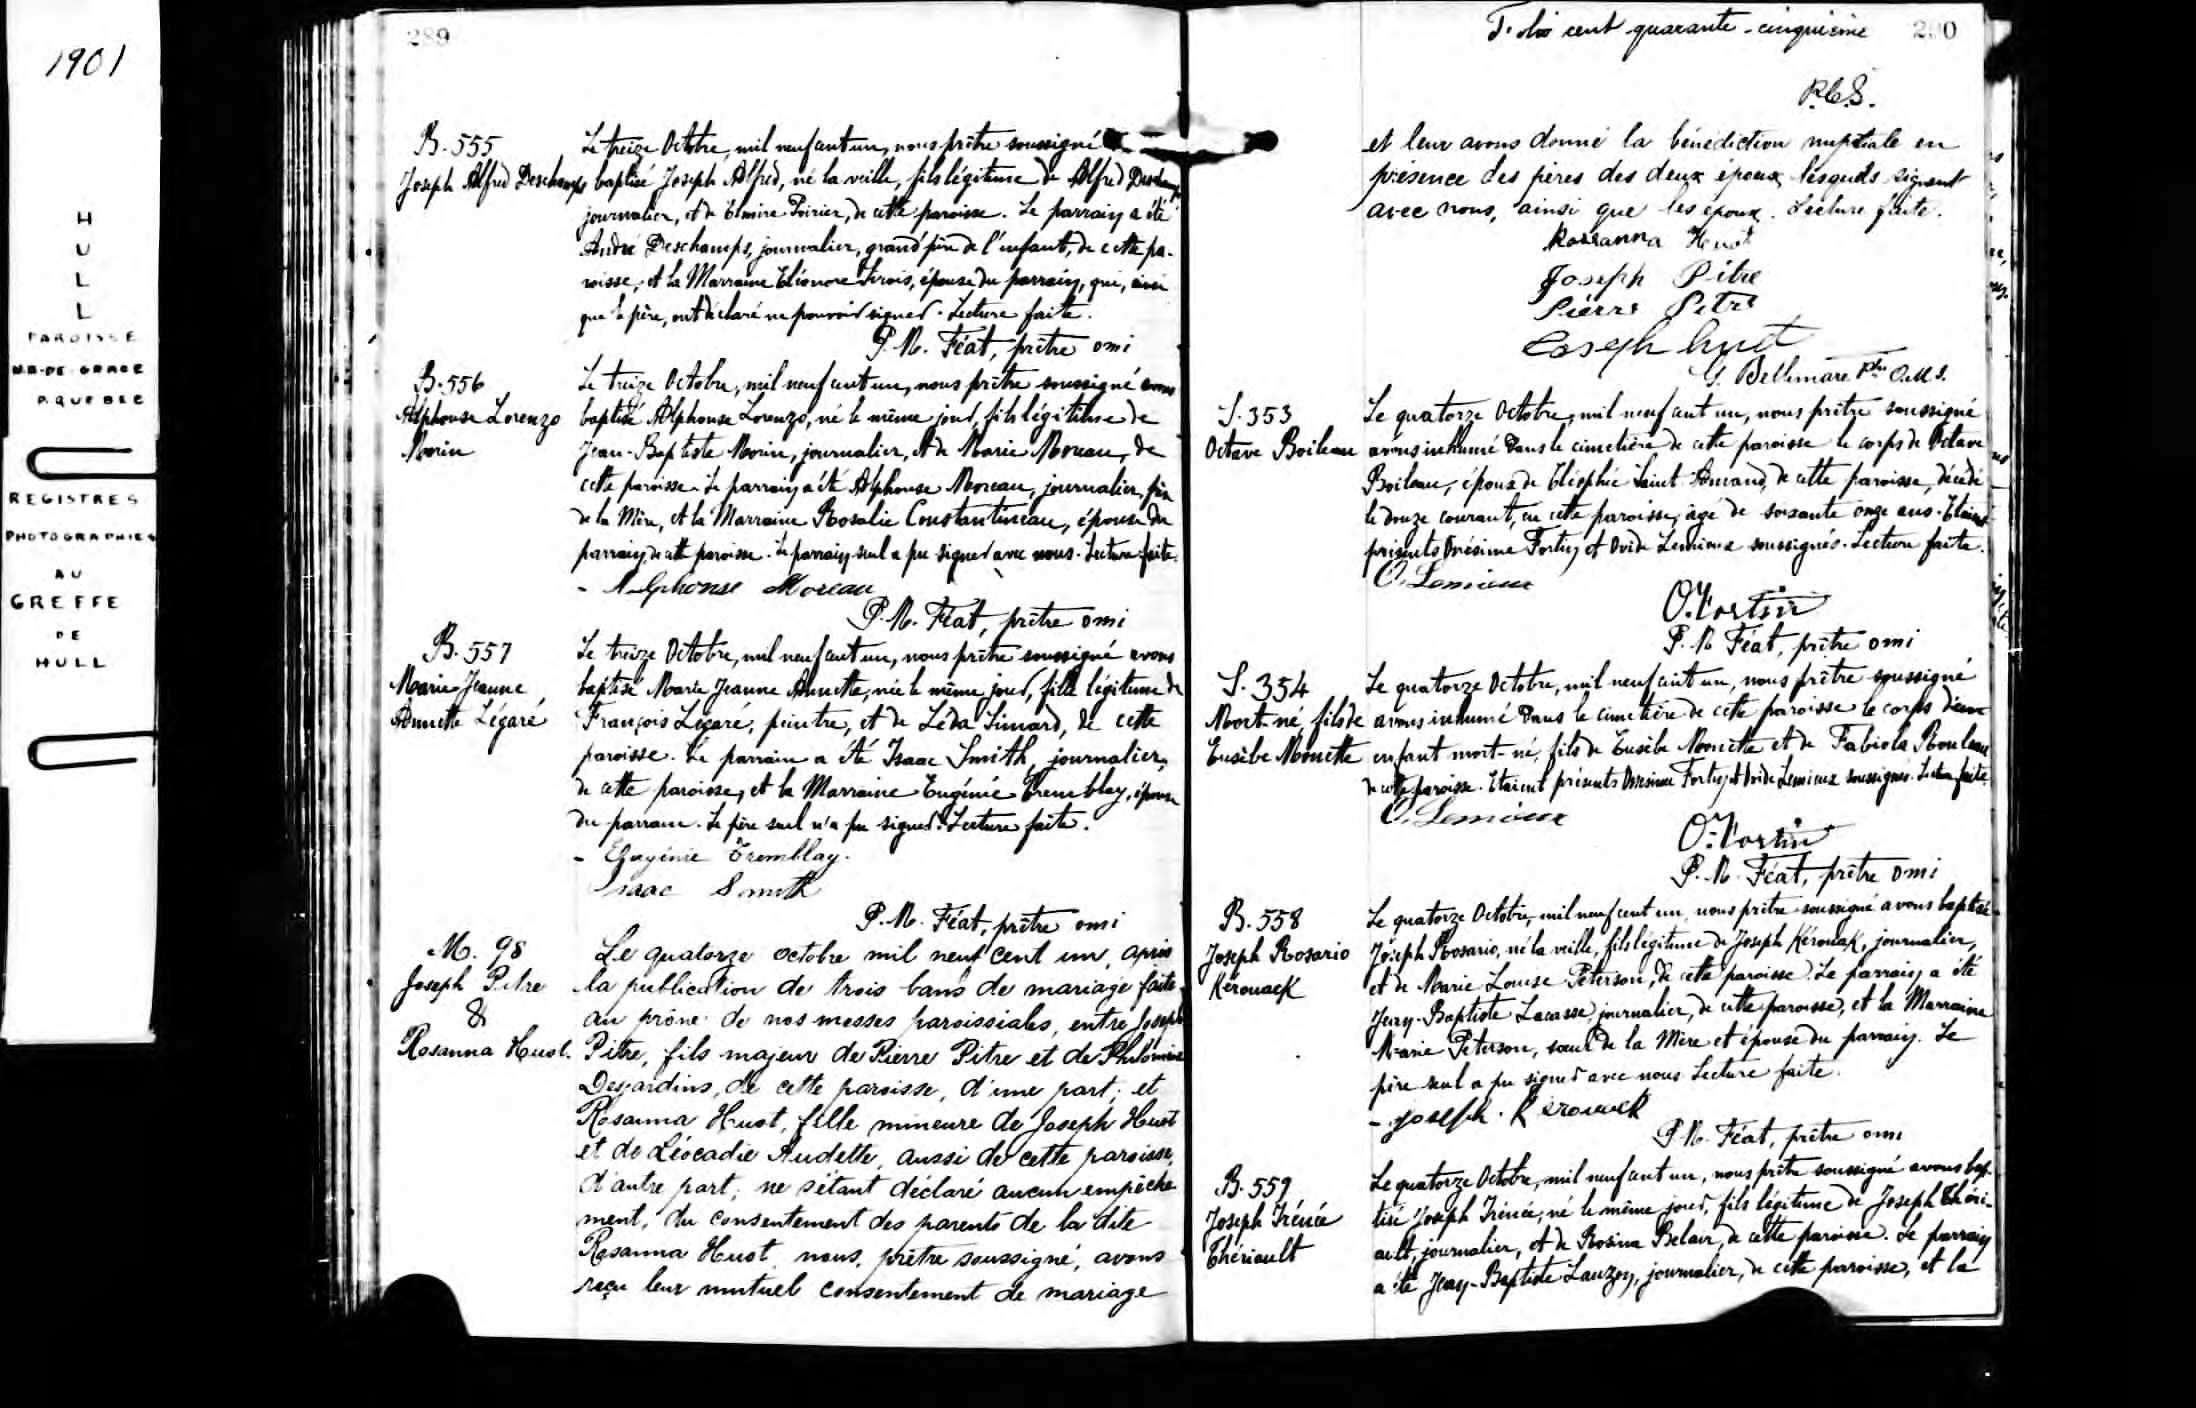 1901
H
U
L
L
PAROISSE
N.D-DE-GRACE
P. QUEBEC
REGISTRES
PHOTOGRAPHIES
AU
GREFFE
DE
HULL
289
B. 555
Joseph Alfred Deschamps
Le treize Octobre, mil neuf cent un, nous prêtre soussigné
baptisé Joseph Alfred, né la veille, fils légitime de Alfred Deschamps
journalier, et de Elmire Poirier, de cette paroisse. Le parrain a été
André Deschamps, journalier, grand'père de l'enfant, de cette pa-
roisse, et la Marraine Eléonore Sirois, épouse du parrain, qui, ainsi
que le père, ont déclaré ne pouvoir signer. Lecture faite.
P. M. Féat, prêtre omi
B. 556
Alphonse Lorenzo
Morin
Le treize Octobre, mil neuf cent un, nous prêtre soussigné avons
baptisé Alphonse Lorenzo, né le même jour, fils légitime de
Jean-Baptiste Morin, journalier, et de Marie Moreau, de
cette paroisse. Le parrain a été Alphonse Moreau, journalier, père
de la Mère, et la Marraine Rosalie Constantineau, épouse du
parrain, de cette paroisse. Le parrain seul a pu signer avec nous. Lecture faite.
- Alphonse Moreau
P. M. Féat, prêtre omi
B. 557
Marie Jeanne
Annette Légaré
Le treize Octobre, mil neuf cent un, nous prêtre soussigné avons
baptisé Marie Jeanne Annette, née le même jour, fille légitime de
François Légaré, peintre, et de Léda Simard, de cette
paroisse. Le parrain a été Isaac Smith, journalier,
de cette paroisse, et la Marraine Eugénie Tremblay, épouse
du parrain. Le père seul n'a pu signer. Lecture faite.
- Eugénie Tremblay.
Isaac Smith
P. M. Féat, prêtre omi
M. 98
Joseph Pitre
&
Rosanna Huot.
Le quatorze octobre mil neuf cent un, après
la publication de trois bans de mariage faite
au prône de nos messes paroissiales, entre Joseph
Pitre, fils majeur de Pierre Pitre et de Philomène
Desjardins, de cette paroisse, d'une part; et
Rosanna Huot, fille mineure de Joseph Huot
et de Léocadie Audette, aussi de cette paroisse,
d'autre part; ne s'étant déclaré aucun empêche
ment, du consentement des parents de la dite
Rosanna Huot, nous, prêtre soussigné, avons
reçu leur mutuel consentement de mariage
Folio cent quarante-cinquième 290
et leur avons donné la bénédiction nuptiale en
présence des pères des deux époux lesquels signent
avec nous, ainsi que les époux. Lecture faite.
Rosanna Huot
Joseph Pitre
Pierre Pitre
Joseph huot
G. Bellemare Ptre O.M.I.
S. 353
Octave Boileau
Le quatorze Octobre, mil neuf cent un, nous prêtre soussigné
avons inhumé dans le cimetière de cette paroisse le corps de Octave
Boileau, époux de Eléophée Saint Amand, de cette paroisse, décédé
le douze courant, en cette paroisse, âgé de soixante onze ans. Etaient
présents Onésime Fortin et Ovide Lemieux soussignés. Lecture faite.
O. Lemieux
O. Fortin
P. M. Féat, prêtre omi
S. 354
Mort-né fils de
Eusèbe Monette
Le quatorze Octobre, mil neuf cent un, nous prêtre soussigné
avons inhumé dans le cimetière de cette paroisse le corps d'un
enfant mort-né, fils de Eusèbe Monette et de Fabiola Rouleau
de cette paroisse. Etaient présents Onésime Fortin et Ovide Lemieux soussignés. Lecture faite.
O. Lemieux
O. Fortin
P. M. Féat, prêtre omi
B. 558
Joseph Rosario
Kérouack
Le quatorze Octobre, mil neuf cent un, nous prêtre soussigné avons baptisé
Joseph Rosario, né la veille, fils légitime de Joseph Kérouak, journalier,
et de Marie Louise Peterson, de cette paroisse. Le parrain a été
Jean-Baptiste Lacasse, journalier, de cette paroisse, et la Marraine
Marie Peterson, soeur de la Mère et épouse du parrain. Le
père seul a pu signer avec nous. Lecture faite.
- Joseph. Kerouack
P. M. Féat, prêtre omi
B. 559
Joseph Irénée
Thériault
Le quatorze Octobre, mil neuf cent un, nous prêtre soussigné avons bap-
tisé Joseph Irénée, né le même jour, fils légitime de Joseph Théri-
ault, journalier, et de Rosina Belair, de cette paroisse. Le parrain
a été Jean-Baptiste Lauzon, journalier, de cette paroisse, et la